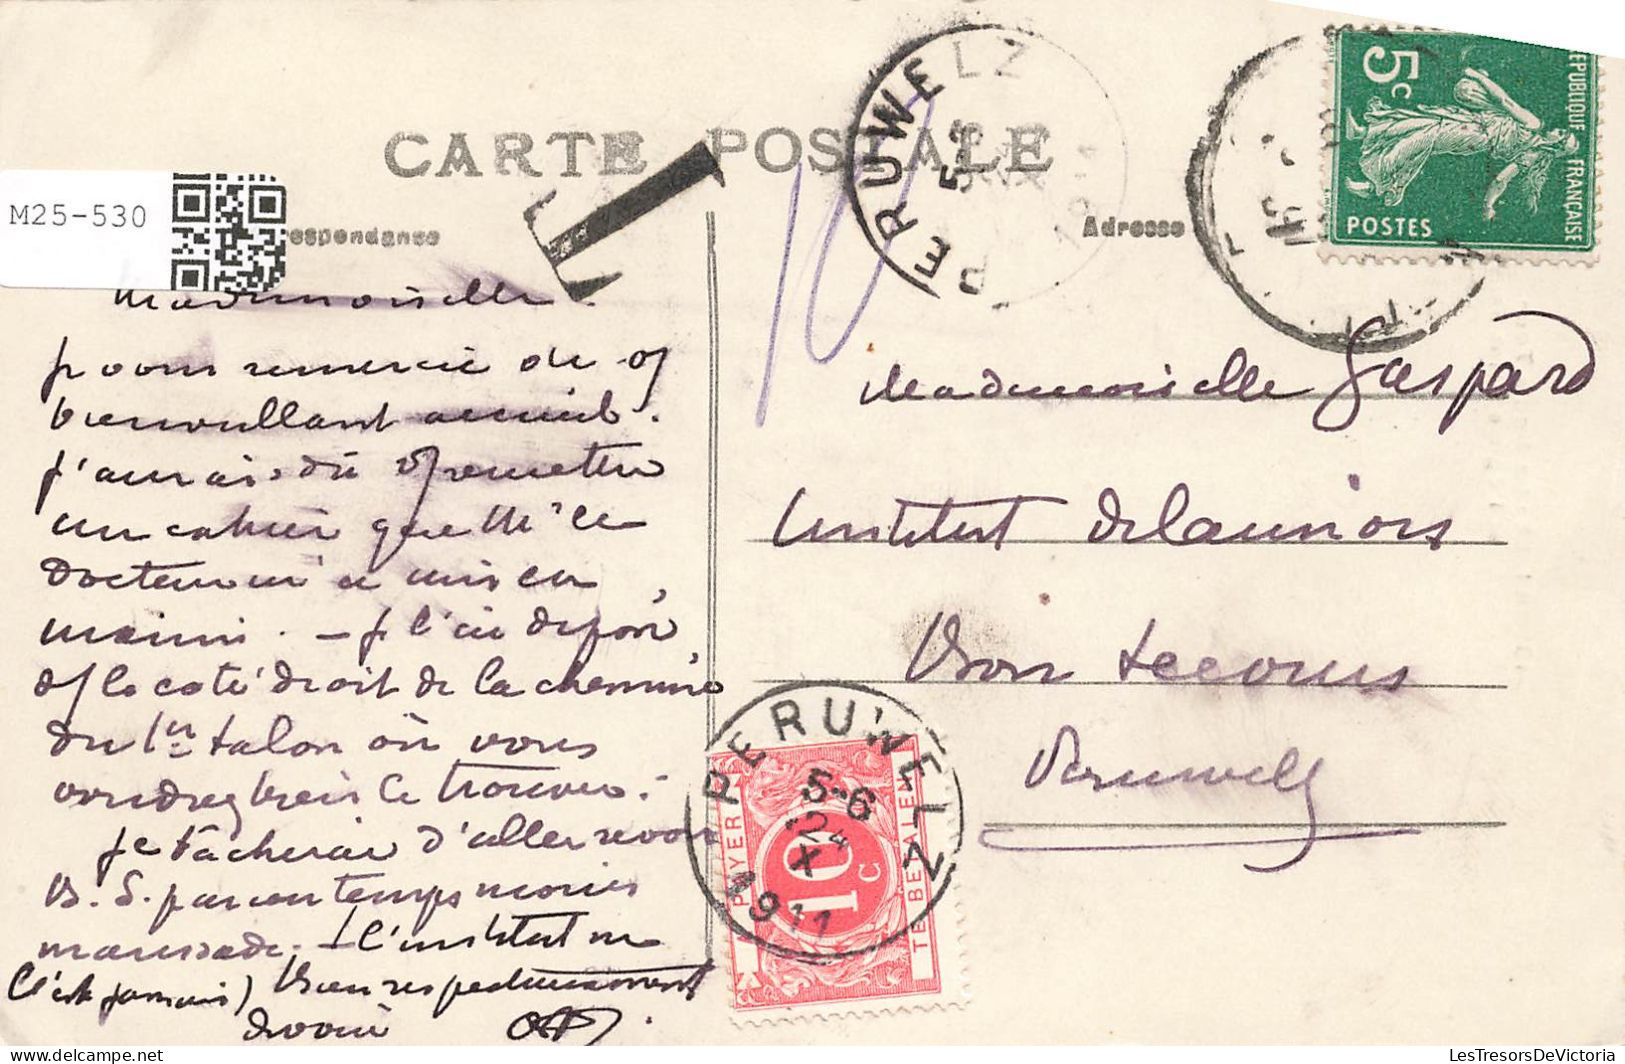 CARTE POSTALE
M25-530
espondance
Adresse
T
10
PERUWELZ
5-
5c
REPUBLIQUE FRANÇAISE
POSTES
Mademoiselle.
remercie de
bienveillant accueil.
J'aurais dû remettre
un cahier que Mr le
docteur m'a mis en
mains. – Je l'ai déposé,
le côté droit de la cheminée
du 1er talon où vous
voudrez bien le trouver.
Je tâcherai d'aller revoir
B. S. par un temps moins
maussade. – (l'institut ne
l'est jamais) Bien respectueusement
dévoué
Mademoiselle Gaspard
Institut Delaunois
Bon Secours
Peruwelz
PERUWELZ
5-6
24
X
1911
A PAYER
10 C
TE BETALEN
LesTresorsDeVictoria